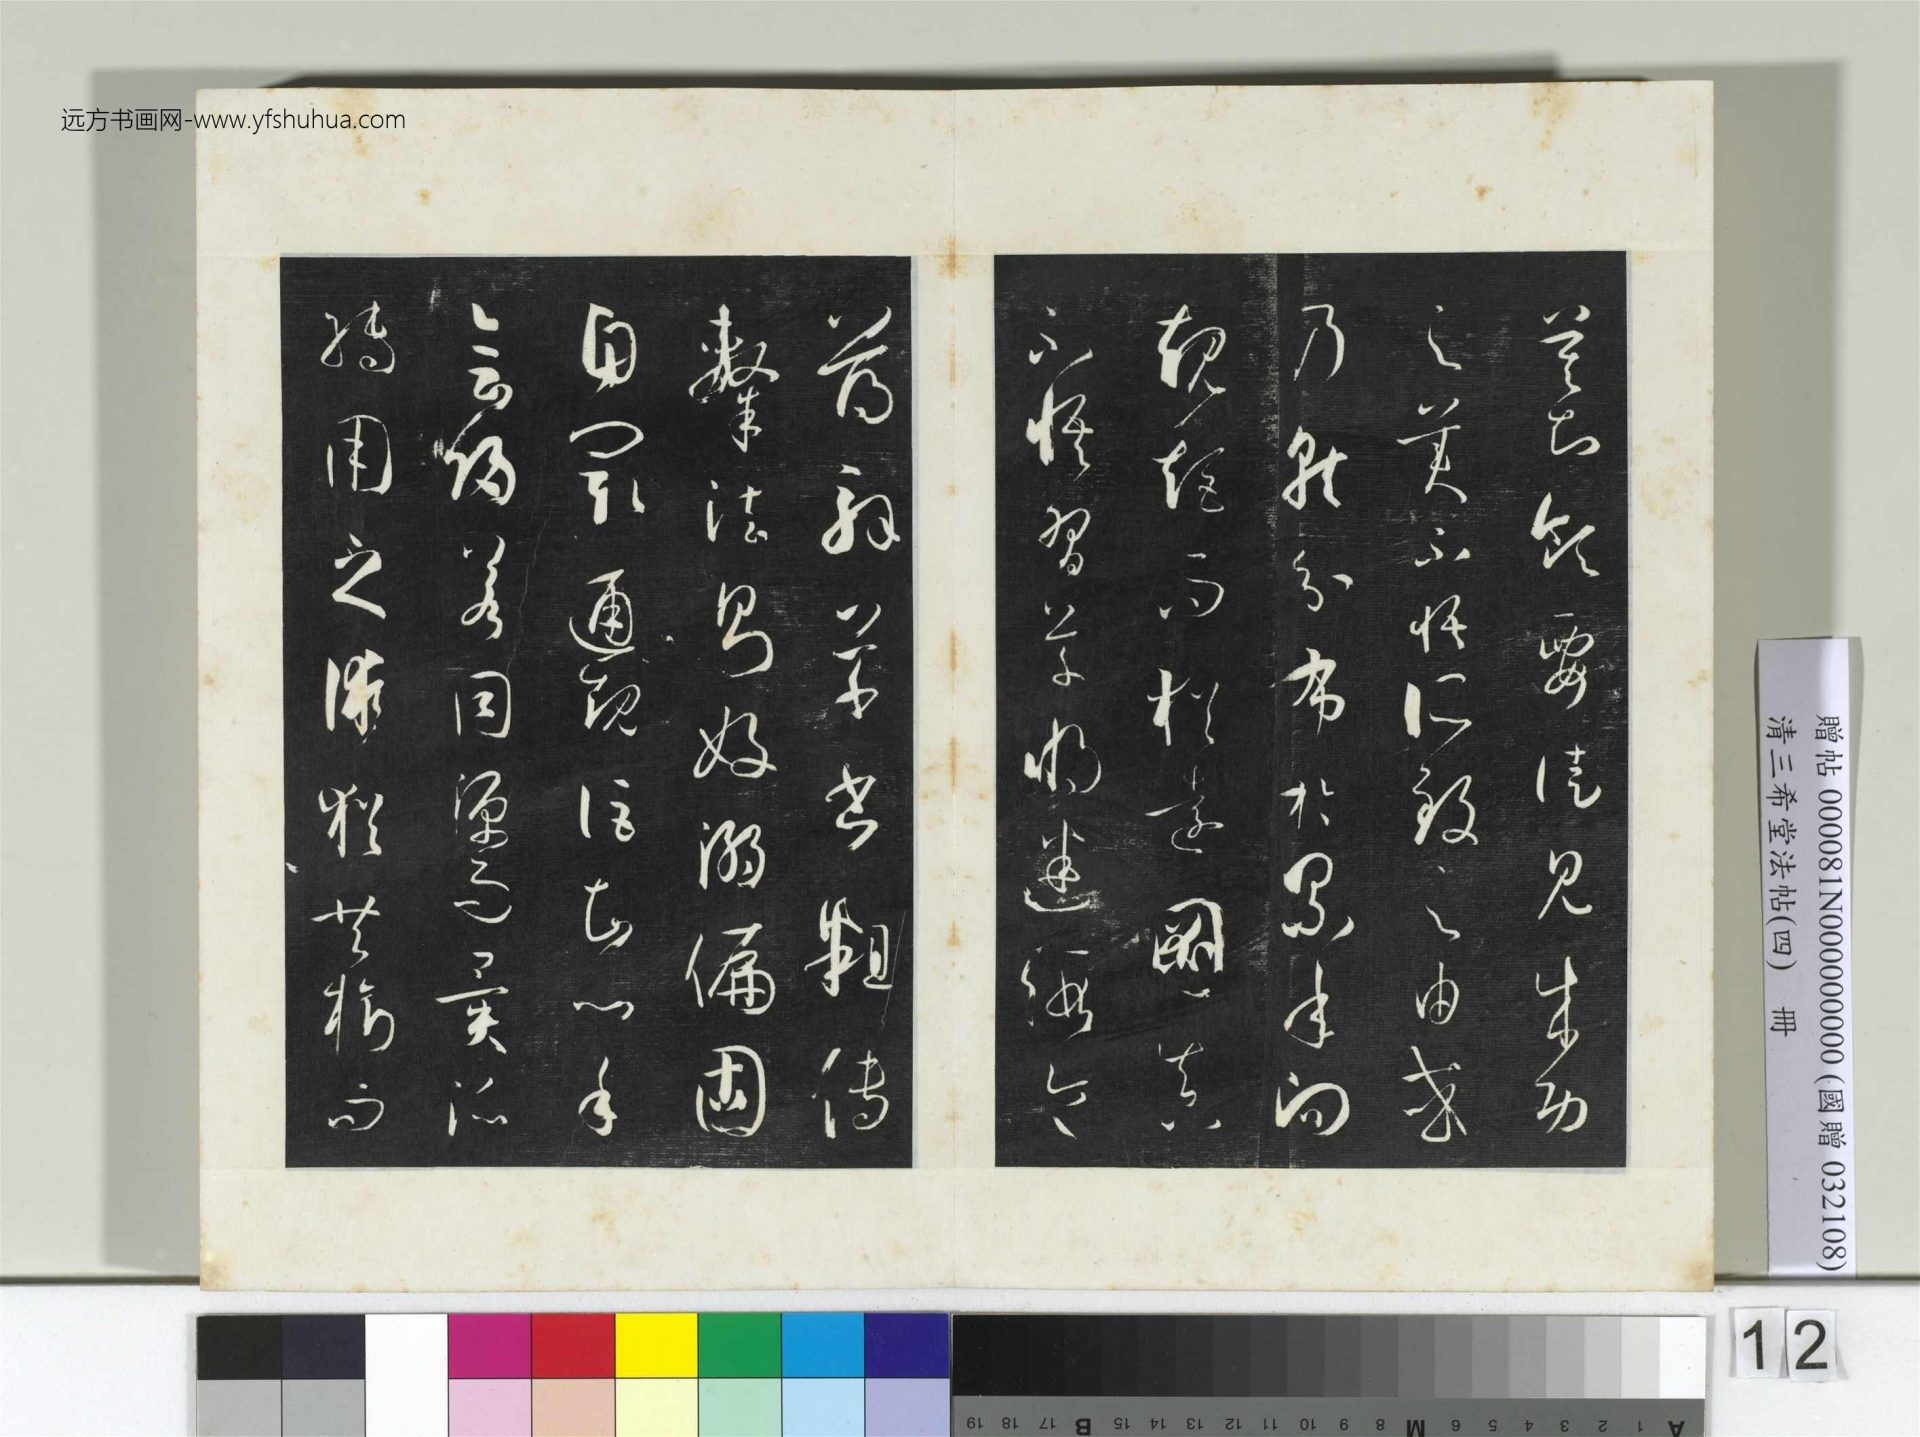 远方书画网-www.yfshuhua.com
莫知領要徒見成功
之美不悟所致之由或
乃就分布於累年向
規矩而猶遠圖真
不悟習草將迷假令
薄解草書粗傳
隸法則好溺偏固
自閡通規詎知心手
會歸若同源而異派
轉用之術猶共樹而
贈帖 000081N000000000 (國贈 032108)
清三希堂法帖(四) 冊
12
A 1 2 3 4 5 6 M 8 9 10 11 12 13 14 15 B 17 18 19